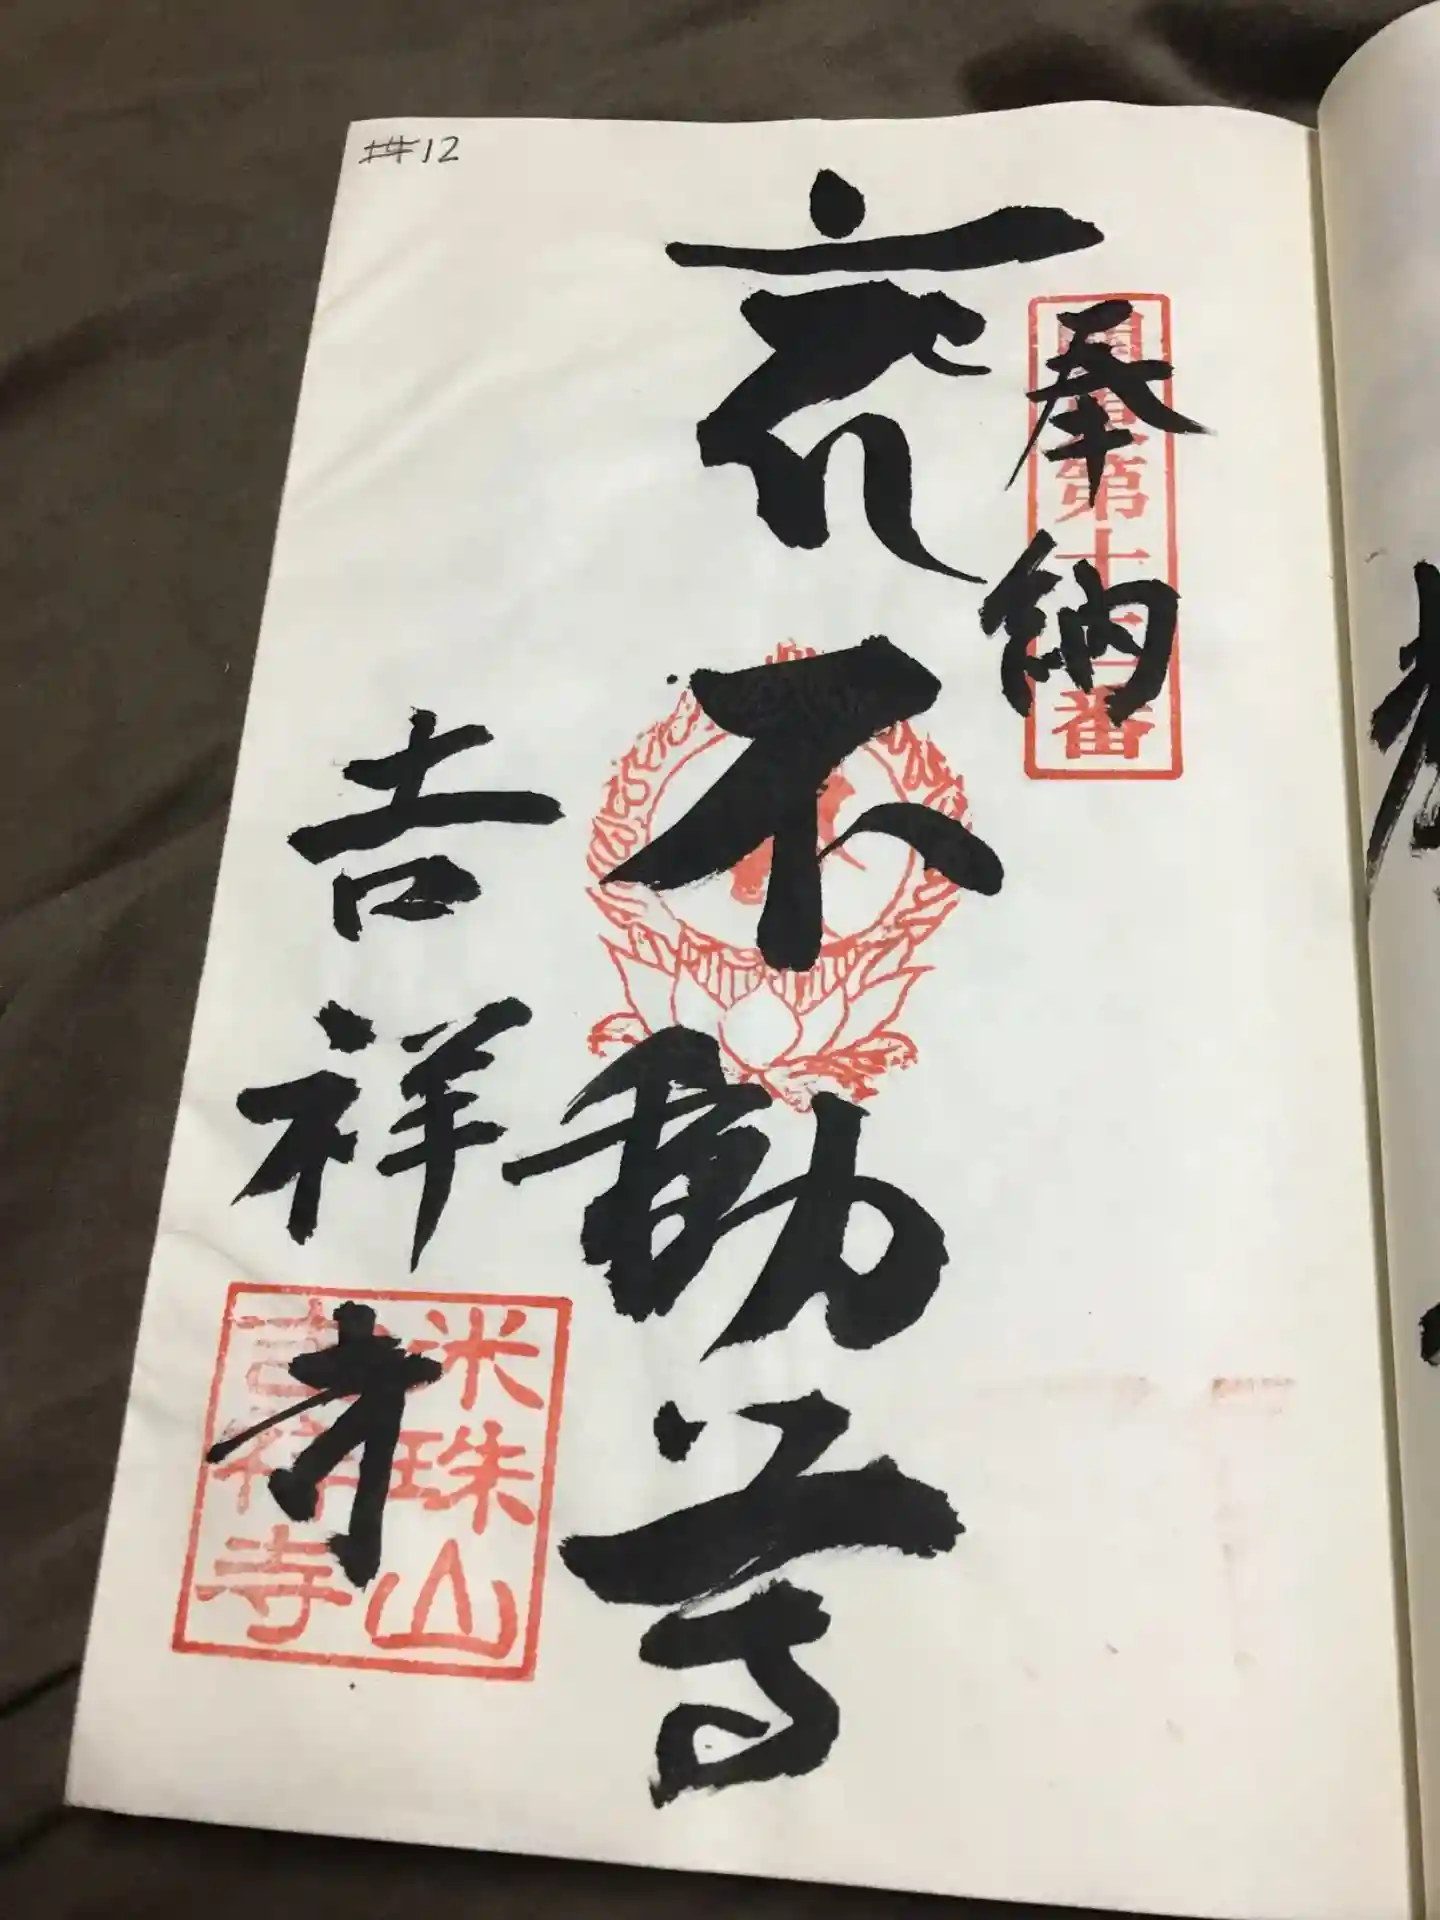 #12
奉納
第十二番
不動尊
吉祥寺
米珠山
吉祥寺